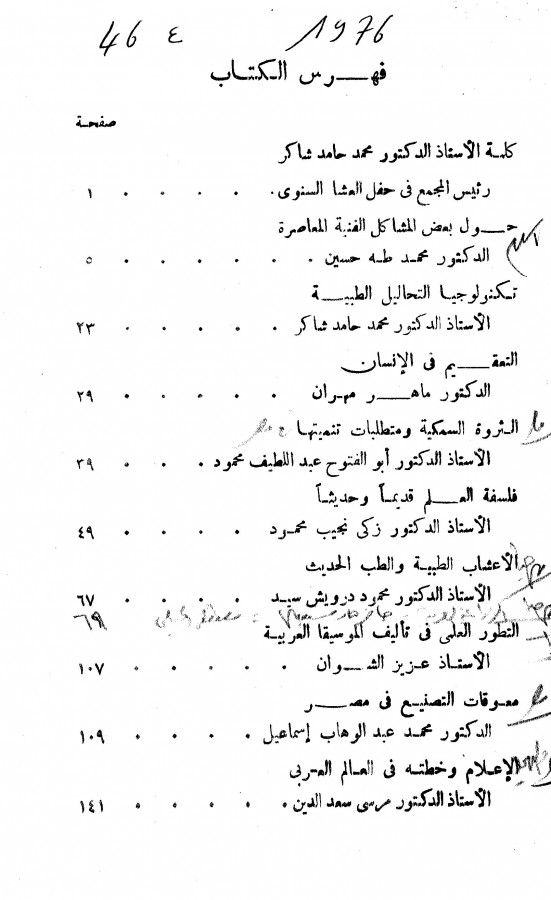 46 ع 1976
فهرس الكتاب
صفحة
كلمة الأستاذ الدكتور محمد حامد شاكر
رئيس المجمع فى حفل العشا السنوى . . . . . ١
حول بعض المشاكل الفنية المعاصرة
الدكتور محمد طه حسين . . . . . . ٥
تكنولوجيا التحاليل الطبية
الأستاذ الدكتور محمد حامد شاكر . . . . . ٢٣
التعقيم فى الإنسان
الدكتور ماهر مهران . . . . . ٢٩
الثروة السمكية ومتطلبات تنميتها
الأستاذ الدكتور أبو الفتوح عبد اللطيف محمود . . . . ٣٩
فلسفة العلم قديماً وحديثاً
الأستاذ الدكتور زكى نجيب محمود . . . . . ٤٩
الأعشاب الطبية والطب الحديث
الأستاذ الدكتور محمود درويش سيد . . . . . ٦٧
٦٩
التطور العلمى فى تأليف الموسيقا العربية
الأستاذ عزيز الشوان . . . . . . ١٠٧
معوقات التصنيع فى مصر
الدكتور محمد عبد الوهاب إسماعيل . . . . . ١٠٩
الإعلام وخطته فى العالم العربى
الأستاذ الدكتور مرسى سعد الدين . . . . . ١٤١